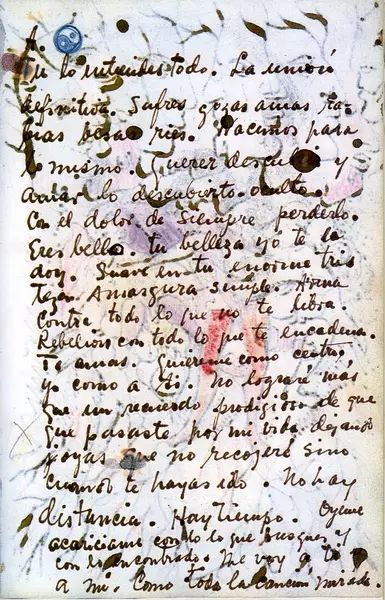 A.
Tu lo entiendes todo. La unión
definitiva. Sufres gozas amas ra-
bias besas ries. Nacimos para
lo mismo. Querer descubrir y
amar lo descubierto. oculto.
Con el dolor de siempre perderlo.
Eres bella. tu belleza yo te la
doy. Suave en tu enorme tris
teza. Amargura simple. Arma
contra todo lo que no te libra.
Rebelion con todo lo que te encadena.
Te amas. Quiereme como centro,
yo como a ti. No lograré más
que un recuerdo prodigioso de que
que pasaste por mi vida dejando
joyas que no recogeré sino
cuando te hayas ido. No hay
distancia. Hay tiempo. Oyeme
acariciame con lo que busques y
con lo encontrado. Me voy a ti
a mi. Como toda la cancion mirada.